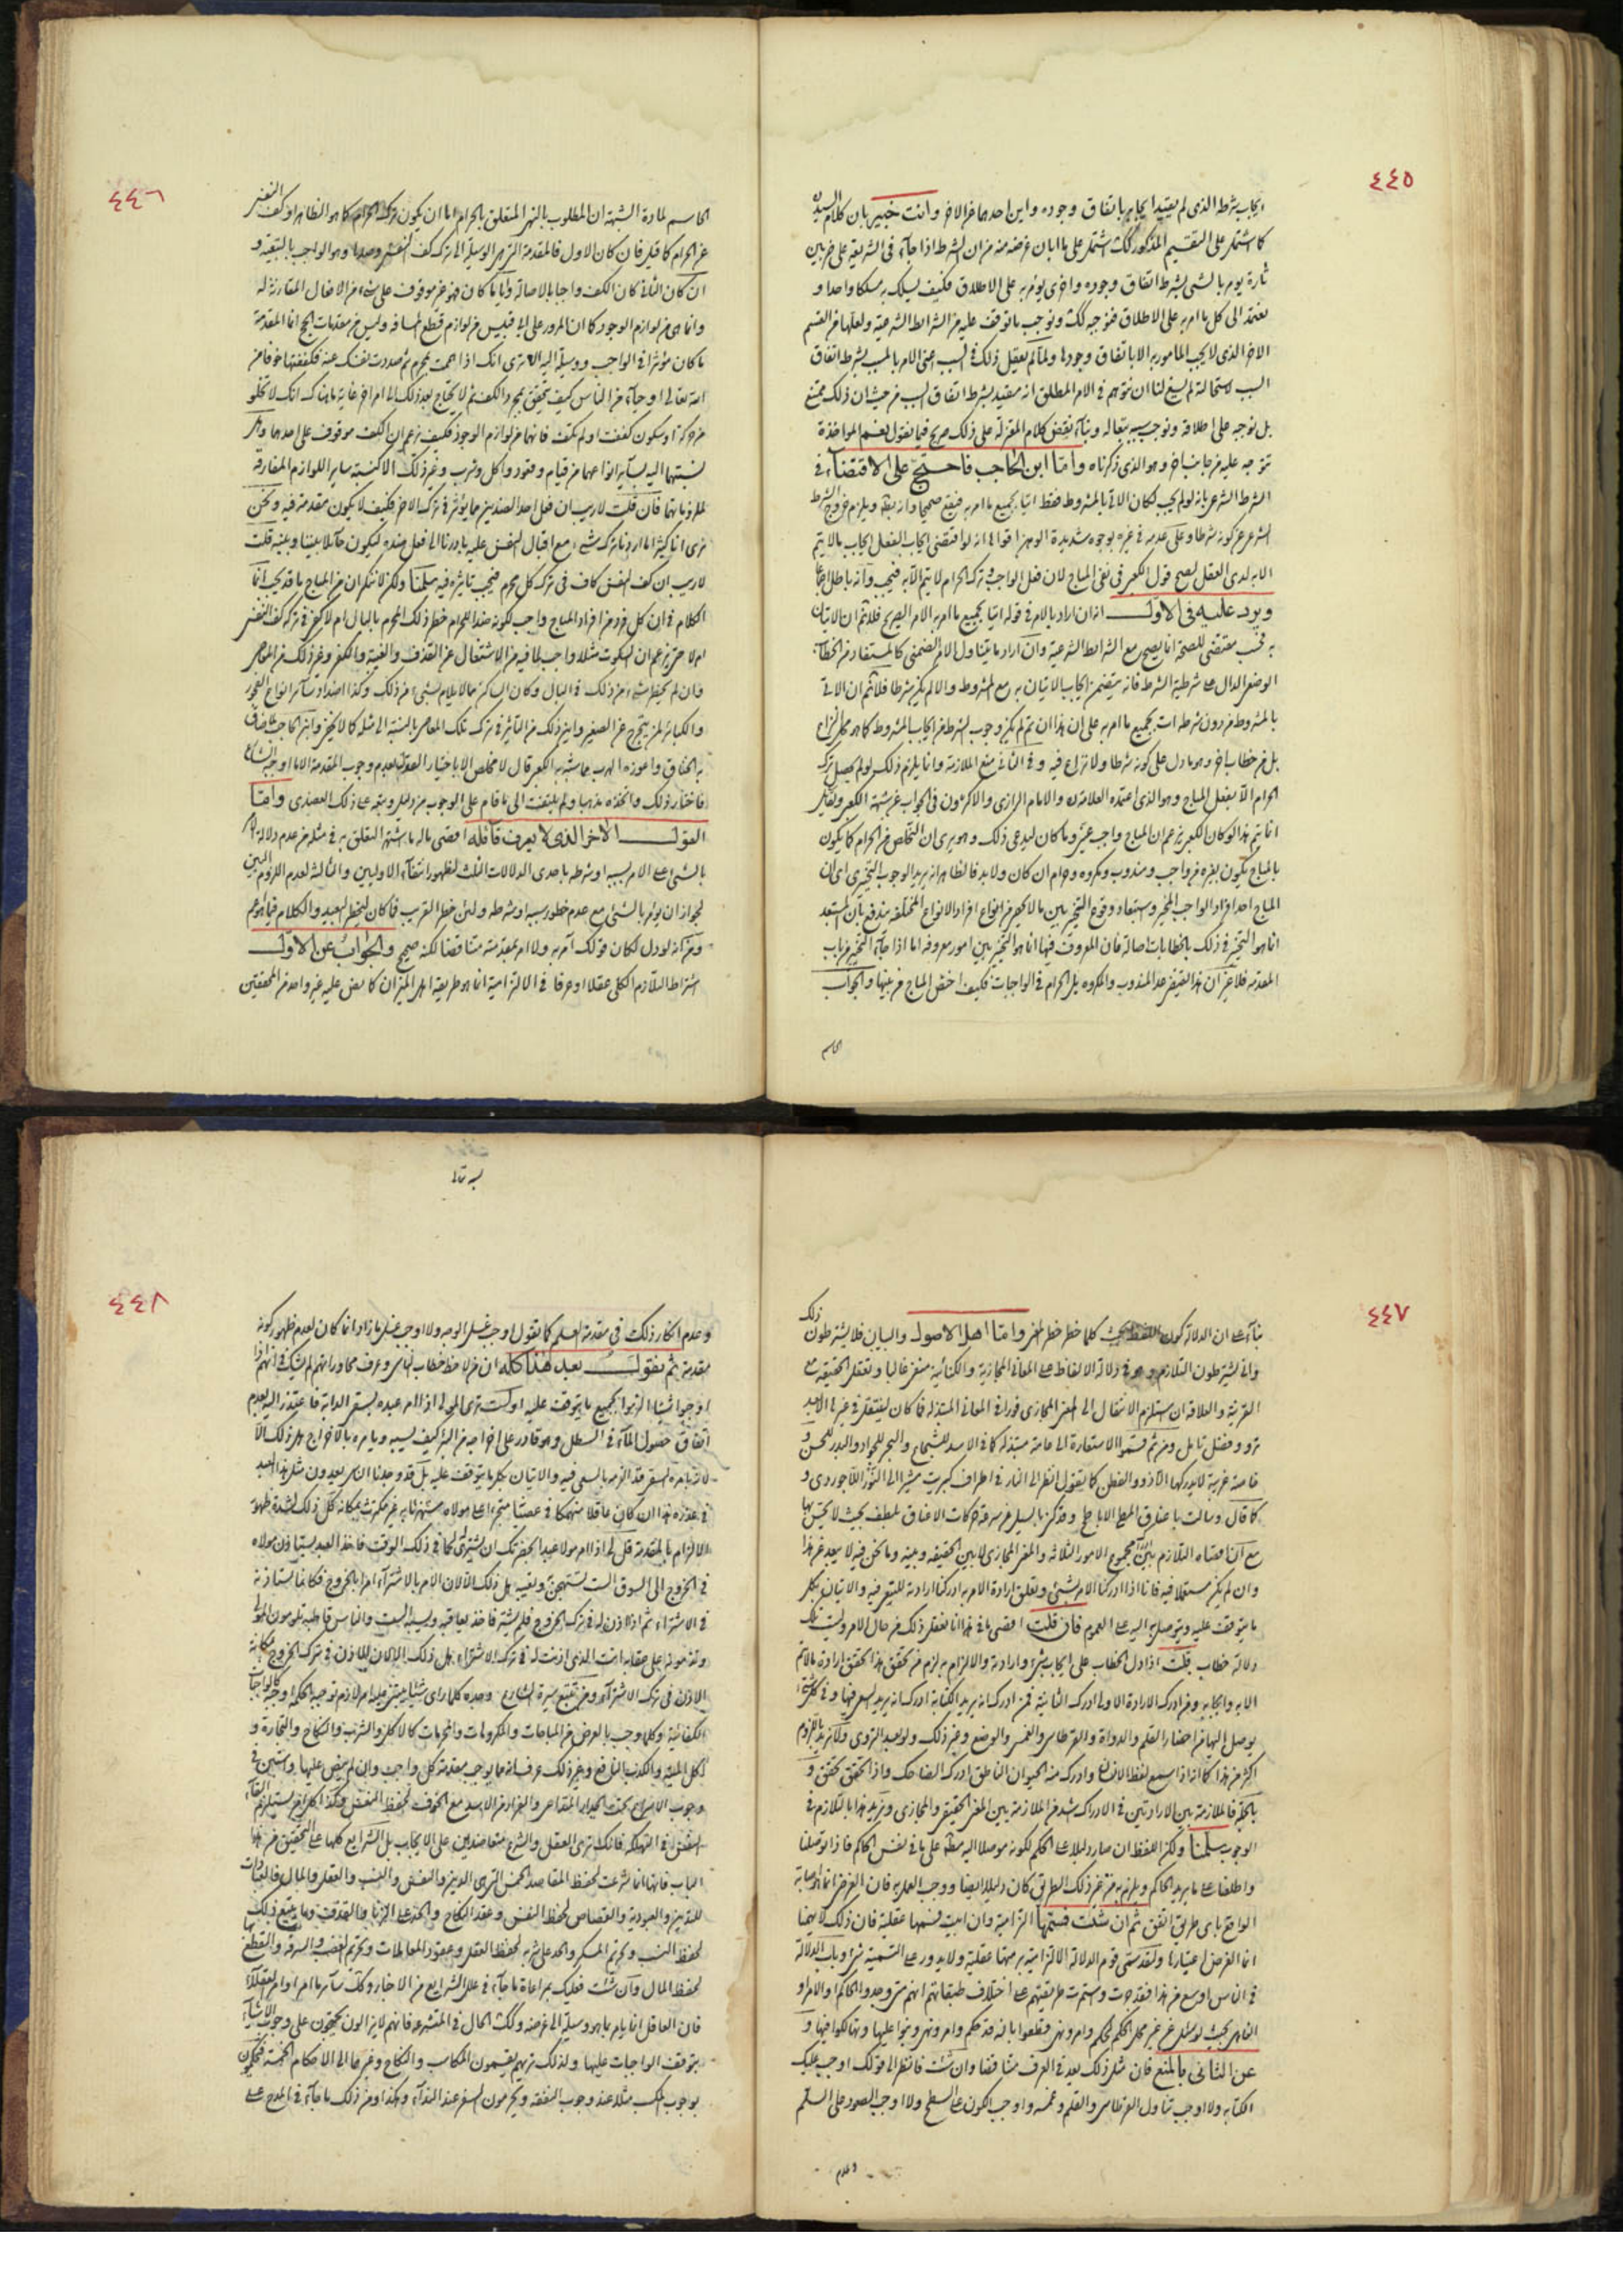 ٤٤٥
ايجاب شرطه الذى لم يقيد ايجابه باتفاق وجوده واين احدهما من الاخر وانت خبير بان كلام السيد
كما اشتمل على التقسيم المذكور كك اشتمل على ما ابان غرضه منه من ان الشرط اذا جآء فى الشريعة على ضربين
تارة يؤمر بالشى بشرط اتفاق وجوده واخرى يؤمر به على الاطلاق فكيف يسلك به مسلكا واحدا و
نعمد الى كل ما امر به على الاطلاق فنوجبه كك ونوجب ما توقف عليه من الشرائط الشرعية ولعلها من القسم
الاخر الذى لا يجب المامور به الا باتفاق وجودها ولما لم يعقل ذلك فى السبب اعنى الامر بالمسبب بشرط اتفاق
السبب لاستحالته لم يسغ لنا ان نتوهم فى الامر المطلق انه مقيد بشرط اتفاق السبب من حيث ان ذلك ممتنع
بل نوجبه على اطلاقه ونوجب سببه بتعاله وبنآء نقض كلام المعتزلة على ذلك صريح فيما نقول نعم المواخذة
تتوجه عليه من جانب اخر وهو الذى ذكرناه واما ابن الحاجب فاحتج على الاقتضآء فى
الشرط الشرعى بانه لو لم يجب لكان الاتى بالمشروط فقط اتيا بجميع ما امر به فيقع صحيحا وانه بط ويلزم خروج الشرط
الشرعى عن كونه شرطا وعلى عدمه فى غيره بوجوه شديدة الوهن اقواها انه لو اقتضى ايجاب الفعل ايجاب ما لا يتم
الا به لدى العقل لصح قول الكعبى فى نفى المباح لان فعل الواجب وترك الحرام لا يتم الا به فيجب وانه باطل اجماعا
ويرد عليه فى الاول انه ان اراد بالامر فى قوله اتيا بجميع ما امر به الامر الصريح فلا ثم ان الاتيان
به فحسب مقتضى للصحة انما يصح مع الشرائط الشرعية وان اراد ما يتناول الامر الضمنى كالمستفاد من الخطاب
الوضعى الدال على شرطية الشرط فانه يتضمن ايجاب الاتيان به مع المشروط والا لم يكن شرطا فلا ثم ان الاتى
بالمشروط من دون شرطه ات بجميع ما امر به على ان هذا ان تم لم يكن وجوب الشرط من ايجاب المشروط كما هو محل النزاع
بل من خطاب اخر وهو ما دل على كونه شرطا ولا نزاع فيه و فى الثانى منع الملازمة وانما يلزم ذلك لو لم يحصل ترك
الحرام الا بفعل المباح وهو الذى اعتمده العلامة ره والامام الرازى والاكثرون فى الجواب عن شبهة الكعبى وقيل
انما يتم هذا لو كان الكعبى يزعم ان المباح واجب عينى وما كان ليدعى ذلك وهو يرى ان التخلص من الحرام كما يكون
بالمباح يكون بغيره من واجب ومندوب ومكروه وحرام ان كان ولا بد فالظاهر انه يريد الوجوب التخييرى اى ان
المباح احد افراد الواجب المخير واستبعاد وقوع التخيير بين ما لا يحصر من انواع افراد الانواع المختلفة يندفع بان المستبعد
انما هو التخيير فى ذلك بالخطابات اصالة فان المعروف فيها انما هو التخيير بين امور معروفة اما اذا جآء التخيير من باب
المقدمة فلا غير ان هذا يقتضى عد المندوب والمكروه بل الحرام فى الواجبات فكيف اختص المباح من بينها والجواب
الحاسم
٤٤٦
الحاسم لمادة الشبهة ان المطلوب بالنهى المتعلق بالحرام اما ان يكون ترك الحرام كما هو الظاهر او كف النفس
عن الحرام كما قيل فان كان الاول فالمقدمة التى هى الوسيلة الى تركه كف النفس وحدها وهو الواجب بالتبعية و
ان كان الثانى كان الكف واجبا بالاصالة وايا ما كان فهو غير موقوف على شىء من الافعال المقارنة له
وانما هى من لوازم الوجود كما ان المرور على ابى قبيس من لوازم قطع المسافر وليس من مقدمات الحج انما المقدمة
ما كان مؤثرا فى الواجب ووسيلة اليه الا ترى انك اذا هممت بمحرم ثم صددت نفسك عنه فكففتها خوفا من
الله تعالى او حيآء من الناس كيف يتحقق بمجرد الكف ثم لا تحتاج بعد ذلك الى امر اخر غاية ما هناك انك لا تخلو
من حركة او سكون كففت او لم تكف فانهما من لوازم الوجود فكيف يزعم ان الكف موقوف على احدهما وهل
نسبتهما اليه بسآير انواعهما من قيام وقعود واكل وشرب وغير ذلك الا كنسبة ساير اللوازم المقارنة
لملزوماتها فان قلت لا ريب ان فعل احد الضدين مما يؤثر فى ترك الاخر فكيف لا يكون مقدمة فيه ونحن
نرى انا كثيرا ما اردنا ترك شىء مع اقبال النفس عليه بادرنا الى فعل ضده ليكون حآئلا بيننا وبينه قلت
لا ريب ان كف النفس كاف فى ترك كل محرم فيجب تاثيره فيه سلمنا ولكن لا ننكر ان من المباح ما قد يجب انما
الكلام فى ان كل فرد من افراد المباح واجب لكونه ضدا للحرام خطر ذلك المحرم بالبال ام لا كفى فى تركه كف النفس
ام لا حتى يزعم ان السكوت مثلا واجب لما فيه من الاشتغال عن القذف والغيبة والكفر وغير ذلك من المعاصى
وان لم يخطر شىء من ذلك فى البال وكان الساكت ممن لا يلام بشىء من ذلك وكذا اضداد سآئر انواع الفجور
به الخناق واعوزه الهرب مما شبه به الكعبى قال لا مخلص الا باختيار القول بعدم وجوب المقدمة الا ما اوجبه الشارع
فاختار ذلك واتخذه مذهبا ولم يلتفت الى ما قام على الوجوب من دليل وتبعه على ذلك العضدى واما
القول الاخر الذى لا يعرف قآئله اقصى ما له ما اشتهر التعلق به فى مثله من عدم دلالة الامر
بالشىء على الامر بسببه او شرطه باحدى الدلالات الثلث لظهور انتفآء الاوليين والثالثة لعدم اللزوم البين
لجواز ان يؤمر بالشىء مع عدم خطور سببه او شرطه ولئن خطر القريب فما كان ليخطر البعيد والكلام فيما هو اعم
ومن انه لو دل لكان قولك آمر به ولا امر بمقدمته متناقضا لكنه صحيح والجواب عن الاول
اشتراط التلازم الكلى عقلا او عرفا فى الالتزامية انما هو طريقة اهل الميزان كما نص عليه غير واحد من المحققين
٤٤٧
بنآء على ان الدلالة كون اللفظ بحيث كلما خطر خطر المعنى واما اهل الاصول والبيان فلا يشترطون ذلك
وانى يشترطون التلازم وهو فى دلالة الالفاظ على المعانى المجازية والكنائية منتف غالبا وتعقل الحقيقة مع
القرينة والعلاقة ان استلزم الانتقال الى المعنى المجازى فورا فى المعانى المبتذلة فما كان لينتقل فى غيرها الا بعد
ترو وفضل تامل ومن ثم قسموا الاستعارة الى عامية مبتذلة كما فى الاسد للشجاع والبحر للجواد والبدر للحسن و
خاصية غريبة لا يدركها الا ذوو الفطن كما يقول انظر الى النار فى اطراف كبريت مشيرا الى النور اللاجوردى و
كما قال وسالت باعناق المطى الاباطح
مع انا معناه التلازم بين مجموع الامور الثلاثة والمعنى المجازى لا بين الحقيقة وبينه وما نحن فيه لا يبعد عن هذا
وان لم يكن مستعملا فيه فانا اذا ادركنا الامر بشىء وتعلق ارادة الامر به ادركنا ارادته للسعى فيه والاتيان بكل
ما يتوقف عليه ويتوصل به اليه على العموم فان قلت اقصى ما فى هذا انا نعقل ذلك من حال الامر وليست تلك
دلالة خطاب قلت اذا دل الخطاب على ايجاب شىء وارادته والالزام به لزم من تحقق هذا تحقق ارادة ما لا يتم
الا به وايجابه ومن ادرك الارادة الاولى ادرك الثانية فمن ادرك انه يريد الكتابة ادرك انه يريد السعى فيها وفى كل شىء
يوصل اليها من احضار القلم والدواة والقرطاس والغمس والوضع وغير ذلك ولو بعد التروى ولا نريد باللزوم
اكثر من هذا كما انه اذا سمع لفظ الانسان وادرك منه الحيوان الناطق ادرك الضاحك واذا تحقق تحقق و
بالجملة فالملازمة بين الارادتين فى الادراك اشد من الملازمة بين المعنى الحقيقى والمجازى ونريد هذا بالتلازم فى
الوجوب سلمنا ولكن اللفظ ان صار دليلا على الحكم لكونه موصلا اليه مطلقا على ما فى نفس الحاكم فاذا توصلنا
واطلعنا على ما يريد الحاكم ويلزم به من غير ذلك الطريق كان دليلا ايضا ووجب العمل به فان الغرض انما هو اصابة
الواقع باى طريق اتفق ثم ان شئت فسمها التزامية وان ابيت فسمها عقلية فان ذلك لا يهمنا
انما الغرض اعتبارها ولقد سمى قوم الدلالة الالتزامية برمتها عقلية ولا يدور على التسمية شىء وباب الدلالة
فى الناس اوسع من هذا فقد جرت واستمرت طريقتهم على اختلاف طبقاتهم انهم متى وجدوا الحاكم او الامر او
الناهى بحيث لو سئل عن غير محل الحكم لحكم وامر ونهى قطعوا بانه قد حكم وامر ونهى وبنوا عليها وتهالكوا فيها و
عن الثانى بالمنع فان مثل ذلك يعد فى العرف متناقضا وان شئت فانظر الى قولك اوجب عليك
الكتابة ولا اوجب تناول القرطاس والقلم وغمسه واوجب الكون على السطح ولا اوجب الصعود على السلم
وعدم
٤٤٨
وعدم انكار ذلك فى مقدمة العلم كما نقول اوجب غسل الوجه ولا اوجب غسل ما زاد انما كان لعدم ظهور كونه
مقدمة ثم نقول بعد هذا كله ان من لاحظ خطاب الناس وعرف محاوراتهم لم يشك فى انهم اذا
اوجبوا شيئا الزموا بجميع ما يتوقف عليه اولست ترى المولى اذا امر عبده بسقى الدابة فاعتذر اليه بعدم
اتفاق حصول المآء فى السطل وهو قادر على اخراجه من البئر كيف يسبه ويامره بالاخراج وهل ذلك الا
لانه بامره بالسقى قد الزمه بالسعى فيه والاتيان بكل ما يتوقف عليه بل قد وجدنا الناس يعدون مثل هذا العبد
فى عذره هذا ان كان عاقلا منهمكا فى عصيانه متجرئا على مولاه مستهزئا به غير مكترث بمكانه كل ذلك لشدة ظهور
الالزام بالمقدمة قل لى اذا امر مولا عبدا بحضرتك ان يشترى لحما فى ذلك الوقت فاخذ العبد يستاذن مولاه
فى الخروج الى السوق الست تستهجن وتعيبه هل ذلك الا لان الامر بالاشتراء امر بالخروج فكانما يستاذنه
فى الاشترآء ثم اذا اذن له فى ترك الخروج فلم يشتر فاخذ يعاقبه ويسبه الست والناس قاطبة تلومون المولى
وتذمونه على عقابه انت الذى اذنت له فى ترك الاشترآء هل ذلك الا لان الاذن فى ترك الخروج بمكانة
الاذن فى ترك الاشترآء ومن تتبع سيرة الشارع وجده كلما راى شيئا يفتقر اليه امر لازم توجبه الحكمة اوجبه كالواجبات
الكفائية وكلما وجب بالعرض من المباحات والمكروهات والمحرمات كالاكل والشرب والنكاح والتجارة و
اكل الميتة والكذب النافع وغير ذلك عرف انه مما يوجب مقدمة كل واجب وان لم ينص عليها واستبين فى
وجوب الاسراع تحت الجدار المتداعى والفرار من الاسد مع الخوف لحفظ النفس وهكذا كل امر يستلزم القآء
النفس فى التهلكة فانك ترى العقل والشرع متعاضدين على الايجاب بل الشرايع كلها على التحقيق من هذا
الباب فانها انما شرعت لحفظ المقاصد الخمس التى هى الدين والنفس والنسب والعقل والمال فالعبادات
للدين والعبودية والقصاص لحفظ النفس وعقد النكاح والحد على الزنا والقذف وما يتبع ذلك
لحفظ النسب وتحريم المسكر والحد على شربه لحفظ العقل وعقود المعاملات وتحريم الغصب والسرقة والقطع بها
لحفظ المال وان شئت فعليك بمراعاة ما جآء فى علل الشرايع من الاخبار وكك سآئر ما امر اوامر العقلآء
فان العاقل انما يامر بما هو وسيلة الى غرضه وكك الحال فى المتشرعة فانهم لا يزالون يحتجون على وجوب الاشيآء
بتوقف الواجبات عليها ولذلك تريهم يقسمون المكاسب والنكاح وغيرهما الى الاحكام الخمسة فيحكمون
بوجوب الكسب مثلا عند وجوب النفقة ويحرمون السفر عند الندآء وهكذا ومن ذلك ما جآء فى المدح على